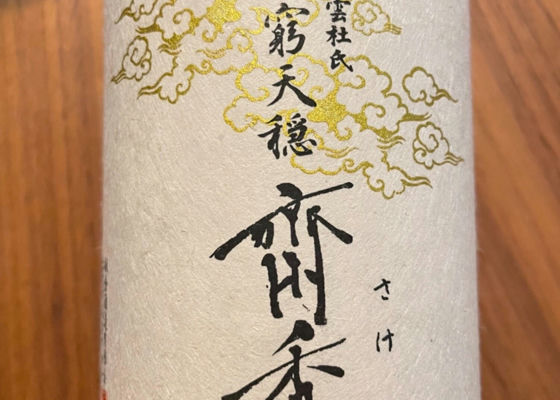 雲杜氏
窮天穏
齋香
さけ